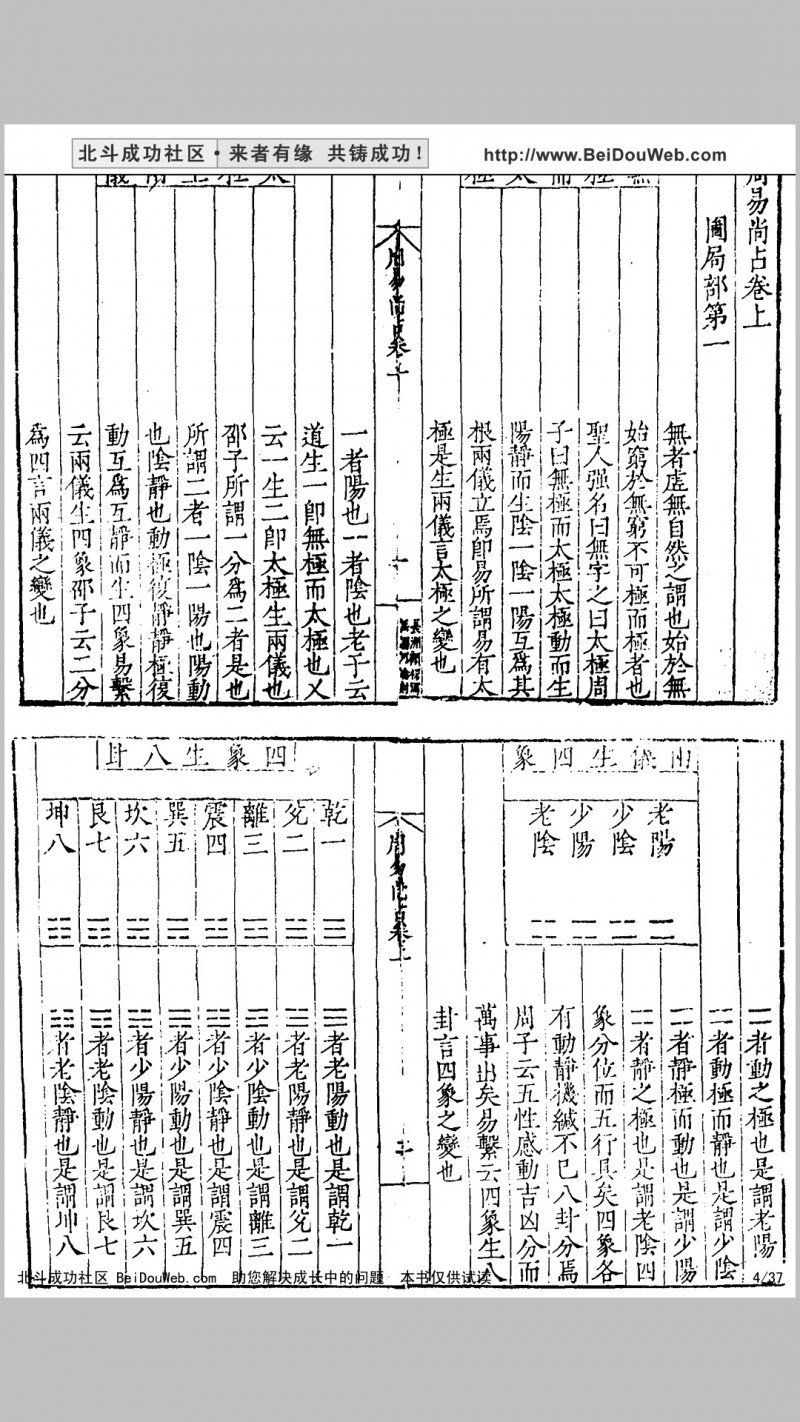 北斗成功社区·来者有缘 共铸成功!
http://www.BeiDouWeb.com
周易尚占卷上
圖局部第一
無者虛無自然之謂也始於無
始窮於無窮不可極而極者也
聖人强名曰無字之曰太極周
子曰無極而太極太極動而生
陽靜而生陰一陰一陽互爲其
根兩儀立焉卽易所謂易有太
極是生兩儀言太極之變也
周易尚占卷上
一
⚊者陽也⚋者陰也老子云
道生一卽無極而太極也又
云一生二卽太極生兩儀也
邵子所謂一分爲二者是也
所謂二者一陰一陽也陽動
也陰靜也動極復靜靜極復
動互爲互靜而生四象易繫
云兩儀生四象邵子云二分
爲四言兩儀之變也
兩儀生四象
老陽
少陰
少陽
老陰
⚌ ⚍ ⚎ ⚏
⚌者動之極也是謂老陽
⚍者動極而靜也是謂少陰
⚎者靜極而動也是謂少陽
⚏者靜之極也是謂老陰四
象分位而五行具矣四象各
有動靜機緘不已八卦分焉
周子云五性感動吉凶分而
萬事出矣易繫云四象生八
卦言四象之變也
周易尚占卷上
二
四象生八卦
乾一
兌二
離三
震四
巽五
坎六
艮七
坤八
☰ ☱ ☲ ☳ ☴ ☵ ☶ ☷
☰者老陽動也是謂乾一
☱者老陽靜也是謂兌二
☲者少陰動也是謂離三
☳者少陰靜也是謂震四
☴者少陽動也是謂巽五
☵者少陽靜也是謂坎六
☶者老陰動也是謂艮七
☷者老陰靜也是謂坤八
北斗成功社区 BeiDouWeb.com 助您解决成长中的问题 本书仅供试读
4/37